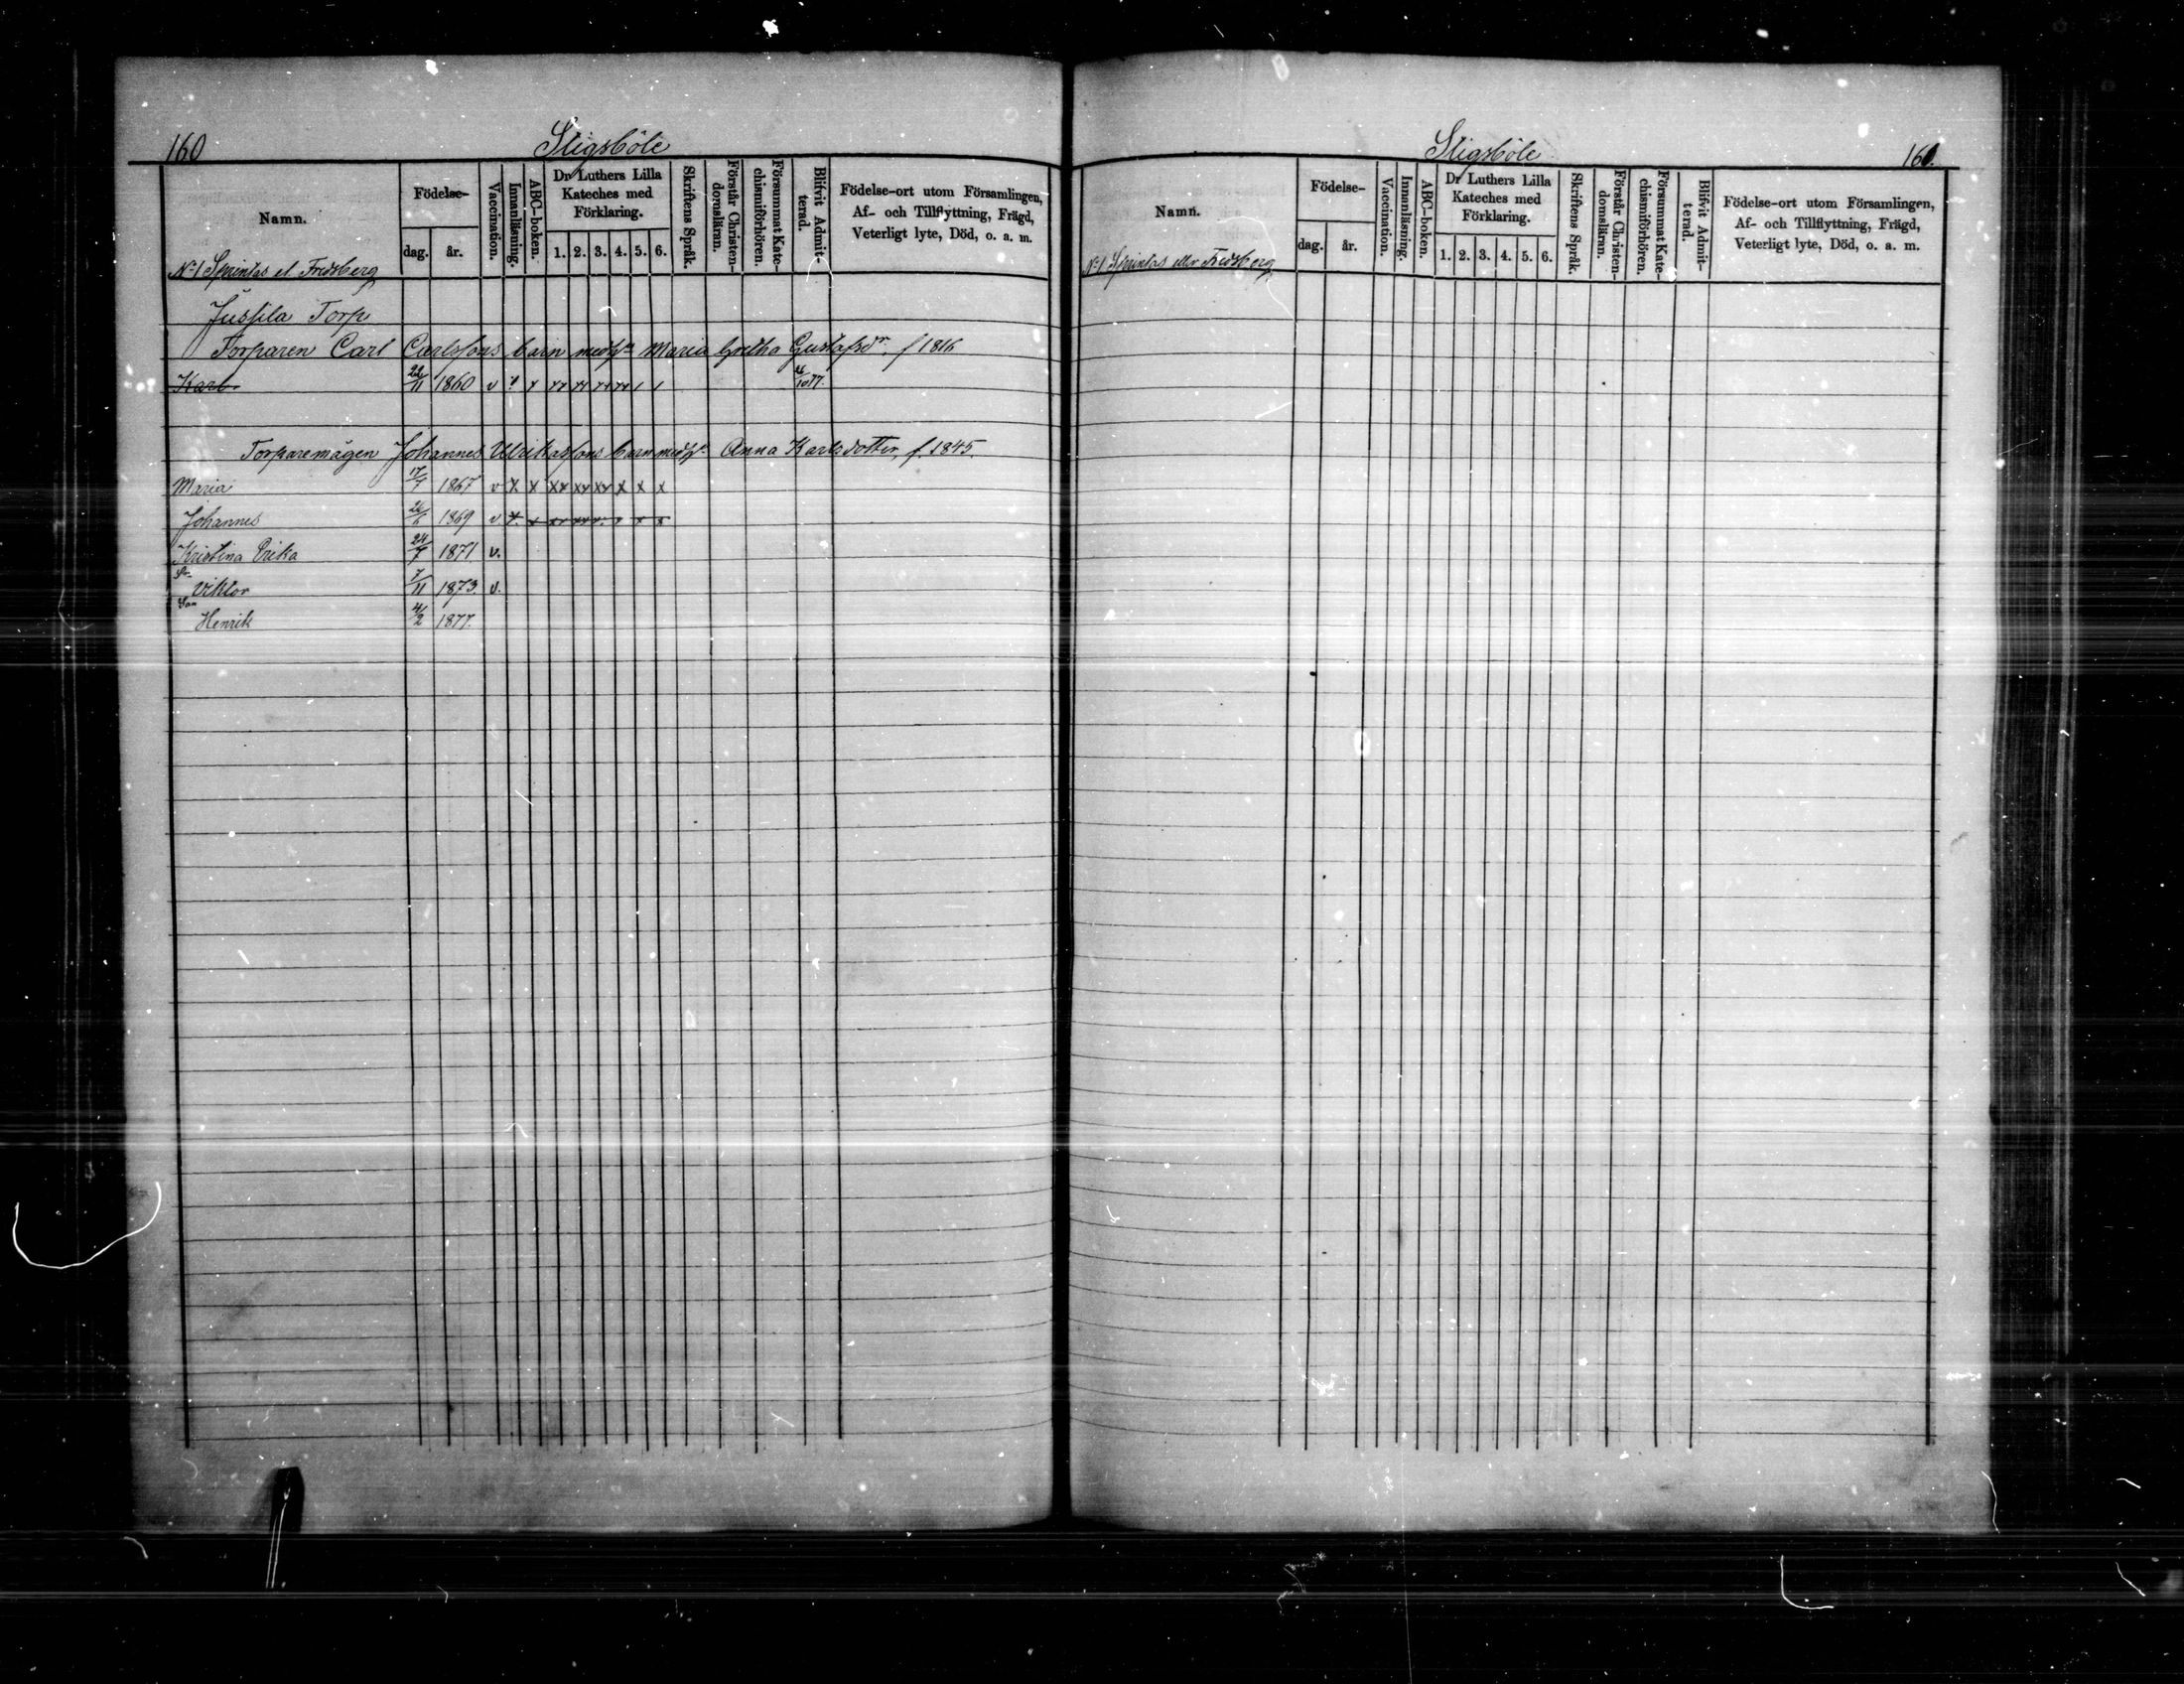 160
Stigsböle
Namn.
Födelse-
dag.
år.
Vaccination.
Innanläsning.
ABC-boken.
Dr Luthers Lilla
Kateches med
Förklaring.
1. 2. 3. 4. 5. 6.
Skriftens Språk.
Förstår Christen-
domsläran.
Försummat Kate-
chismiförhören.
Blifvit Admit-
terad.
Födelse-ort utom Församlingen,
Af- och Tillflyttning, Frägd,
Veterligt lyte, Död, o. a. m.
No 1 Sprintas el. Fredsberg
Jussila Torp
Torparen Carl Carlssons barn med h. Maria Gretha Gustafsdr. f 1816
Karl 22/11 1860 v x x xx xx xx xx 1 1 /10 77.
Torparemågen Johannes Ulrikassons barn med h. Anna Karlsdotter, f. 1845.
Maria 17/7 1867 v x x xx xx xx x x x
Johannes 26/6 1869 v x. x xx xx x. x x x
Kristina Erika 24/7 1871 v.
Viktor 7/11 1873. v.
Henrik 4/2 1877.
Stigsböle
160.
Namn.
Födelse-
dag.
år.
Vaccination.
Innanläsning.
ABC-boken.
Dr Luthers Lilla
Kateches med
Förklaring.
1. 2. 3. 4. 5. 6.
Skriftens Språk.
Förstår Christen-
domsläran.
Försummat Kate-
chismiförhören.
Blifvit Admit-
terad.
Födelse-ort utom Församlingen,
Af- och Tillflyttning, Frägd,
Veterligt lyte, Död, o. a. m.
No 1 Sprintas eller Fredsberg